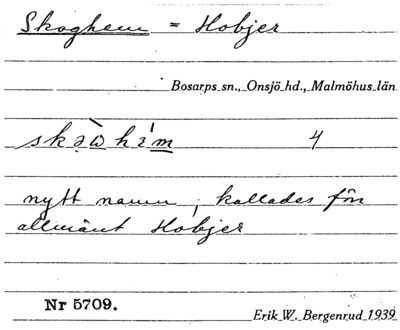 Skoghem = Hobjer
Bosarps sn., Onsjö hd., Malmöhus län
4
nytt namn, kallades förr
allmänt Hobjer
Nr 5709.
Erik W. Bergenrud 1939